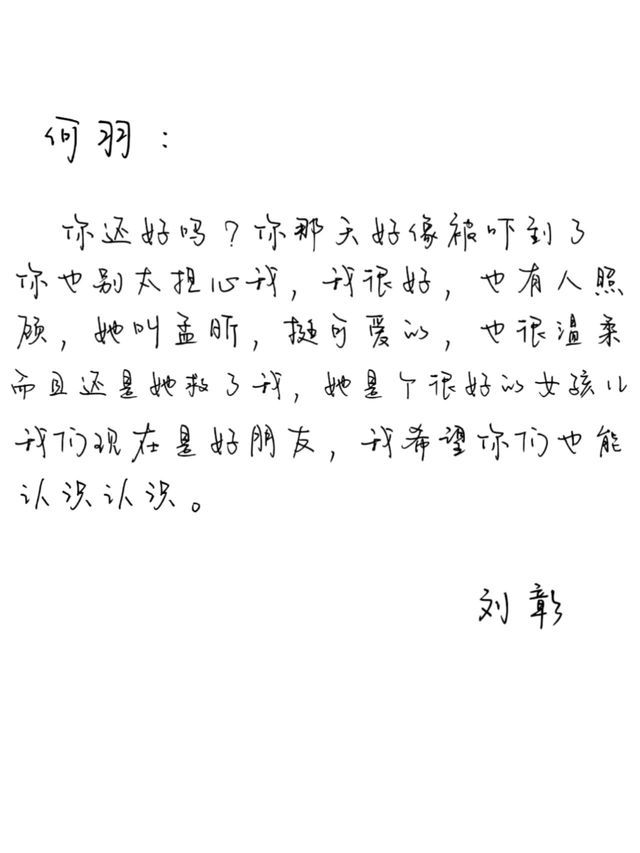 何羽：
你还好吗？你那天好像被吓到了
你也别太担心我，我很好，也有人照
顾，她叫孟昕，挺可爱的，也很温柔
而且还是她救了我，她是个很好的女孩儿
我们现在是好朋友，我希望你们也能
认识认识。
刘彰